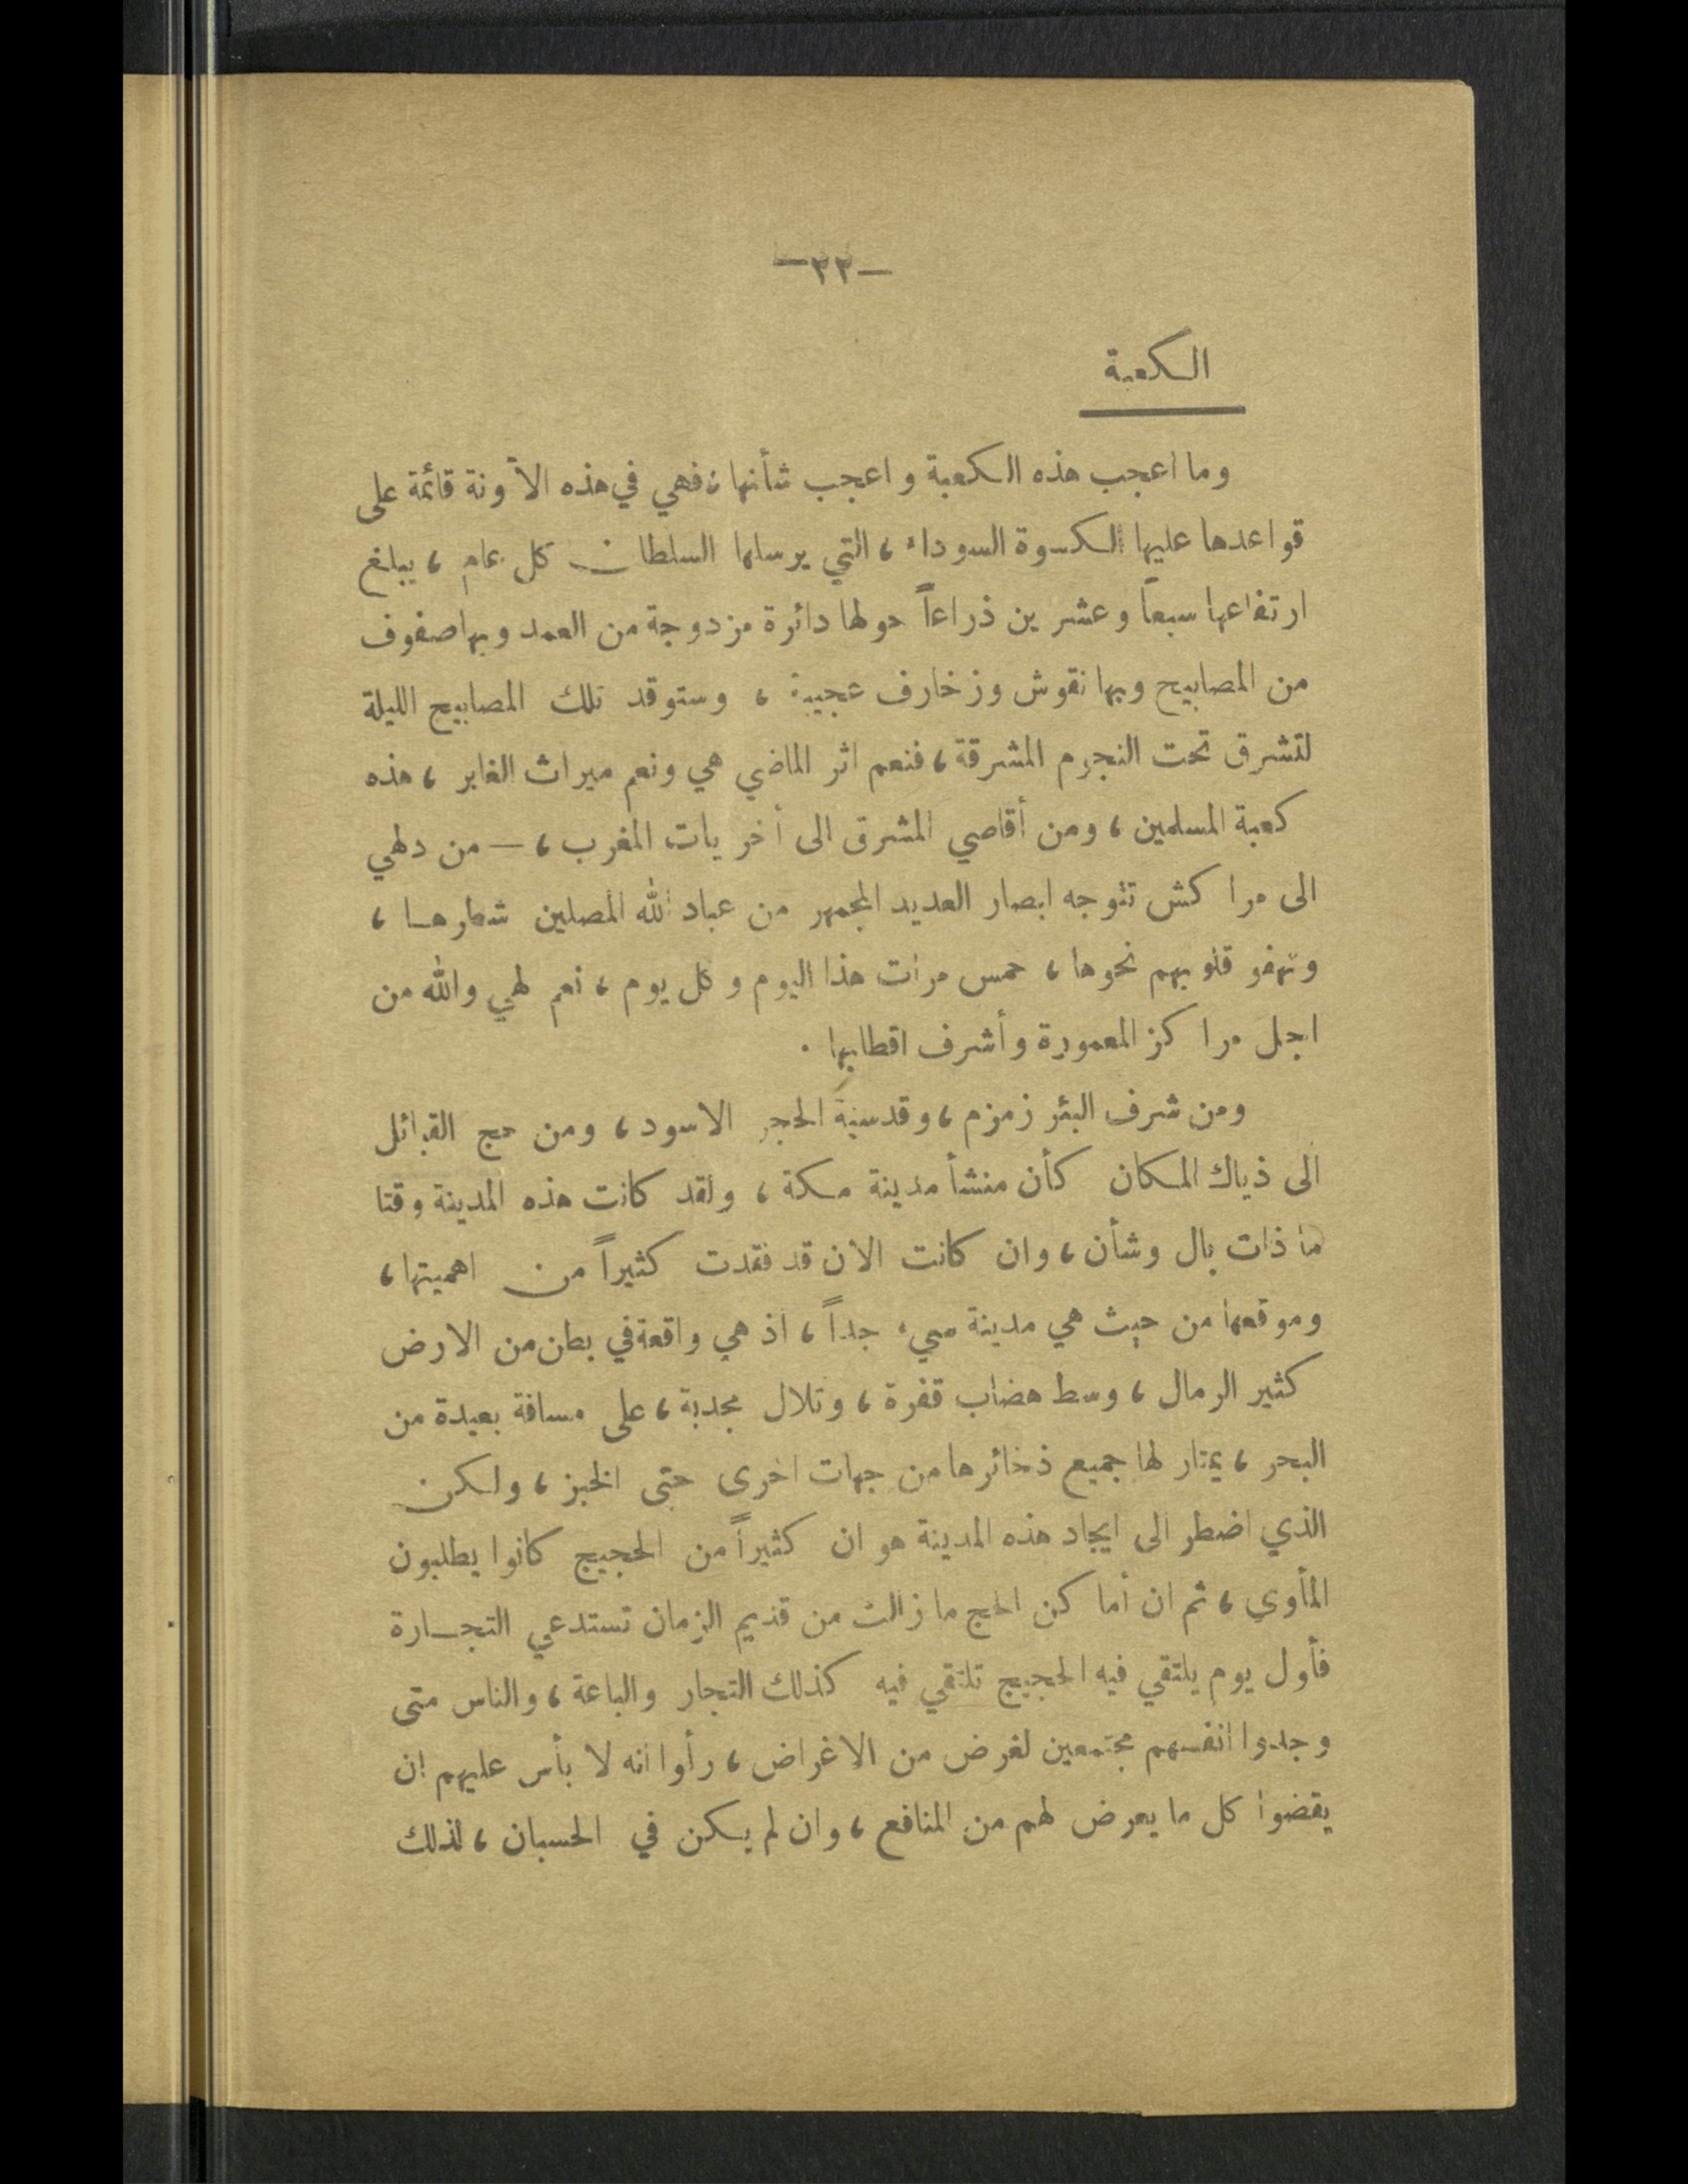 –٢٢–
الكعبة
وما اعجب هذه الكعبة واعجب شأنها، فهي في هذه الآونة قائمة على
قواعدها عليها الكسوة السوداء، التي يرسلها السلطان كل عام، يبلغ
ارتفاعها سبعاً وعشرين ذراعاً حولها دائرة مزدوجة من العمد وبها صفوف
من المصابيح وبها نقوش وزخارف عجيبة، وستوقد تلك المصابيح الليلة
لتشرق تحت النجوم المشرقة، فنعم اثر الماضي هي ونعم ميراث الغابر، هذه
كعبة المسلمين، ومن أقاصي المشرق الى أخريات المغرب، – من دلهي
الى مراكش تتوجه ابصار العديد المجمهر من عباد الله المصلين شطرها،
وتهفو قلوبهم نحوها، خمس مرات هذا اليوم وكل يوم، نعم لهي والله من
اجل مراكز المعمورة وأشرف اقطابها .
ومن شرف البئر زمزم، وقدسية الحجر الاسود، ومن حج القبائل
الى ذياك المكان كأن منشأ مدينة مكة، ولقد كانت هذه المدينة وقتا
ما ذات بال وشأن، وان كانت الان قد فقدت كثيراً من اهميتها،
وموقعها من حيث هي مدينة سيء جداً، اذ هي واقعة في بطن من الارض
كثير الرمال، وسط هضاب قفرة، وتلال مجدبة، على مسافة بعيدة من
البحر، يمتار لها جميع ذخائرها من جهات اخرى حتى الخبز، ولكن
الذي اضطر الى ايجاد هذه المدينة هو ان كثيراً من الحجيج كانوا يطلبون
المأوي، ثم ان أماكن الحج ما زالت من قديم الزمان تستدعي التجارة
فأول يوم يلتقي فيه الحجيج تلتقي فيه كذلك التجار والباعة، والناس متى
وجدوا انفسهم مجتمعين لغرض من الاغراض، رأوا انه لا بأس عليهم ان
يقضوا كل ما يعرض لهم من المنافع، وان لم يكن في الحسبان، لذلك